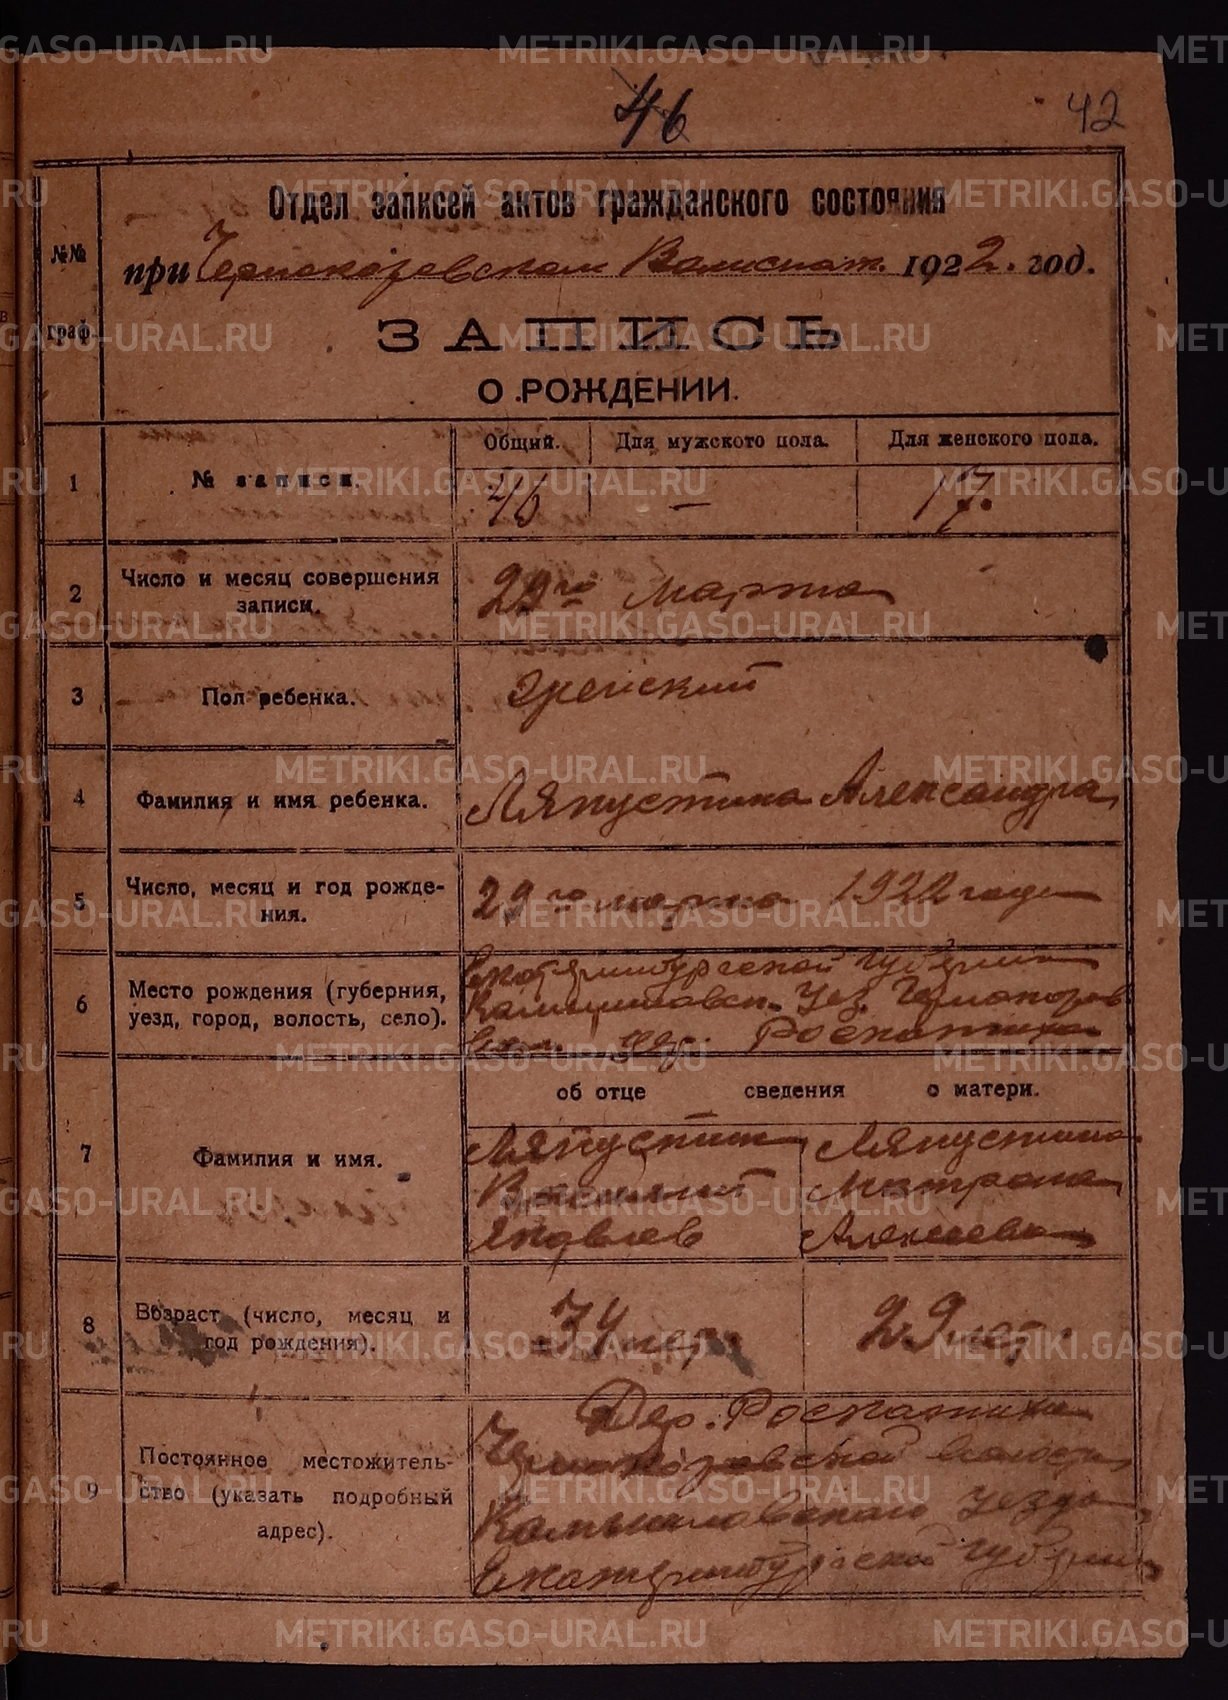 46 42
Отдел записей актов гражданского состояния
№№ граф.
при Чернокоровском Волисполк. 1922. год.
ЗАПИСЬ
О РОЖДЕНИИ.
Общий. Для мужского пола. Для женского пола.
1 № записи. 46 — 17.
2 Число и месяц совершения записи. 29го марта
3 Пол ребенка. женский
4 Фамилия и имя ребенка. Ляпустина Александра
5 Число, месяц и год рожде-
ния. 29го марта 1922 года
6 Место рождения (губерния,
уезд, город, волость, село).
Екатеринбургской губернии
Камышловск. уез. Чернокоров
дер. Роскатиха
об отце сведения о матери.
7 Фамилия и имя.
Ляпустин Ляпустина
Василий Матрона
Яковлев Алексеевна
8 Возраст (число, месяц и
год рождения). 34 лет. 29 лет.
9 Постоянное местожитель-
ство (указать подробный
адрес).
Дер. Роскатиха
Чернокоровской волости
Камышловского уезда
Екатеринбургской губернии
METRIKI.GASO-URAL.RU